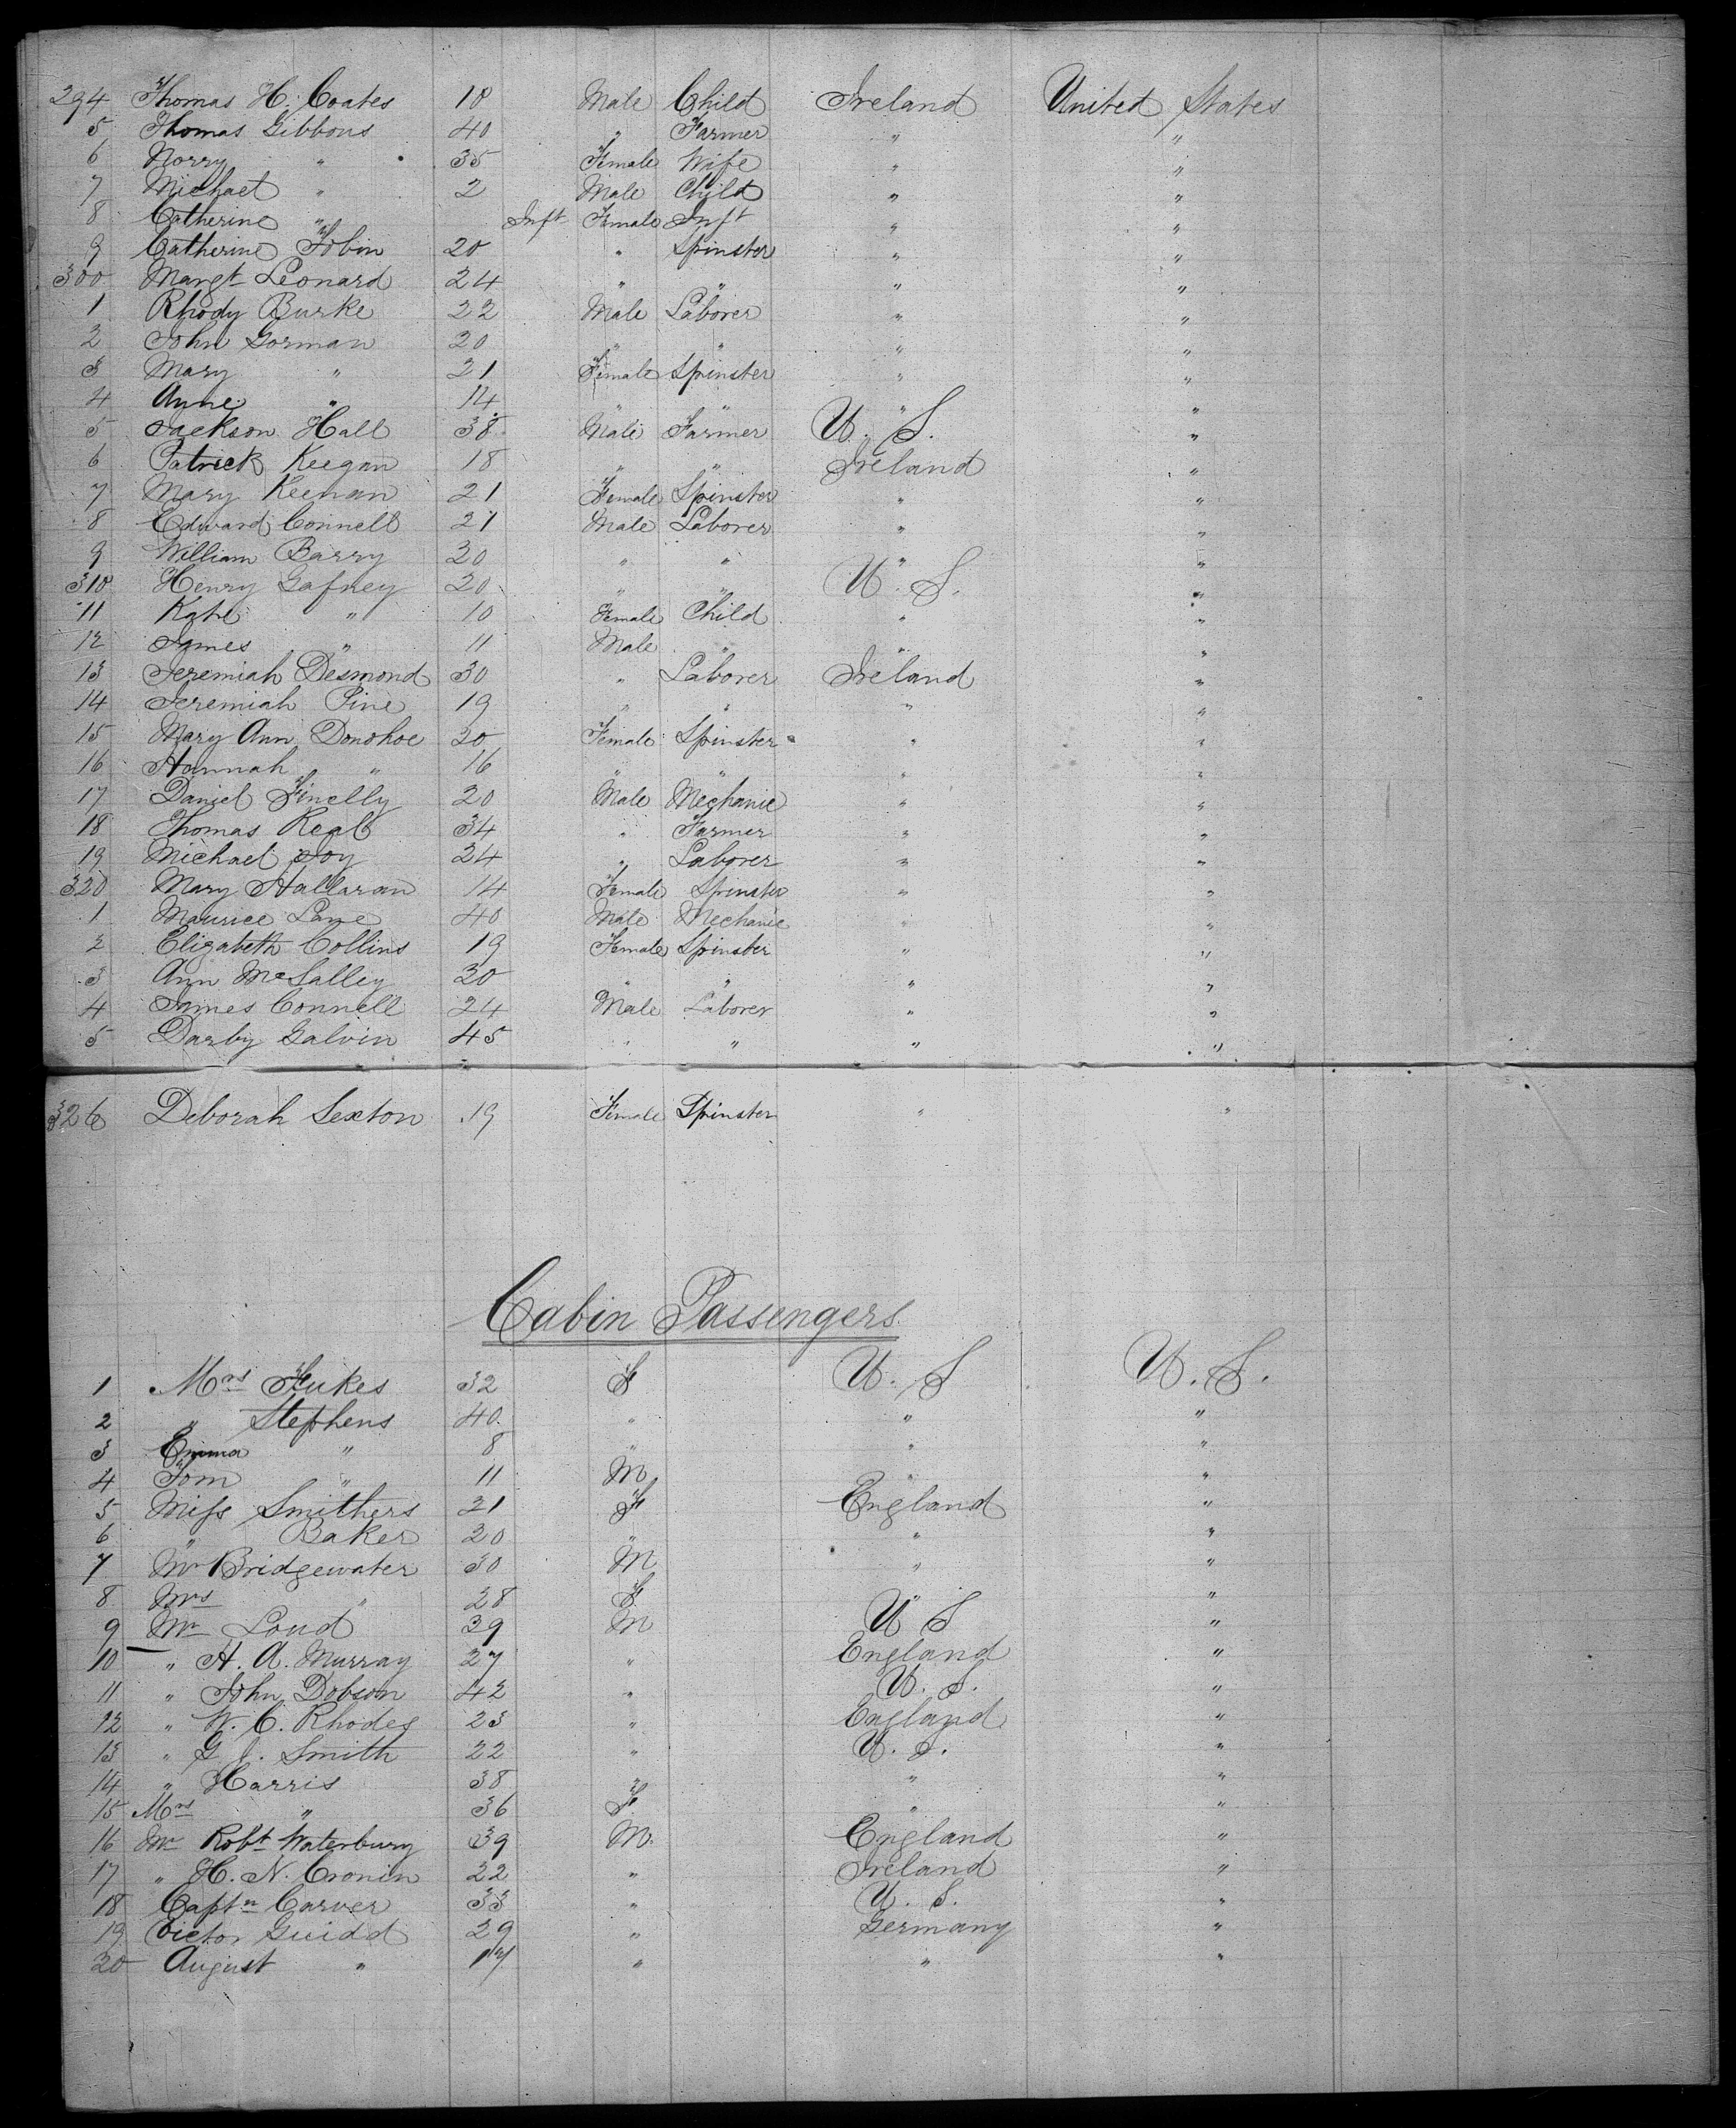 294 Thomas H. Coates 10 Male Child Ireland United States
5 Thomas Gibbons 40 " Farmer " "
6 Norry " 35 Female Wife " "
7 Michael " 2 Male Child " "
8 Catherine " Inft Female Inft " "
9 Catherine Tobin 20 " Spinster " "
300 Margt Leonard 24 " " " "
1 Rhody Burke 22 Male Laborer " "
2 John Gorman 20 " " " "
3 Mary " 21 Female Spinster " "
4 Anne " 14 " " " "
5 Jackson Hall 38 Male Farmer U. S. "
6 Patrick Keegan 18 " " Ireland "
7 Mary Keenan 21 Female Spinster " "
8 Edward Connell 21 Male Laborer " "
9 William Barry 20 " " " "
310 Henry Gafney 20 " " U. S. "
11 Kate " 10 Female Child " "
12 James " 11 Male " " "
13 Jeremiah Desmond 30 " Laborer Ireland "
14 Jeremiah Pine 19 " " " "
15 Mary Ann Donohoe 20 Female Spinster " "
16 Hannah " 16 " " " "
17 Daniel Finelly 20 Male Mechanic " "
18 Thomas Real 34 " Farmer " "
19 Michael Joy 24 " Laborer " "
320 Mary Hallaran 14 Female Spinster " "
1 Maurice Lane 40 Male Mechanic " "
2 Elizabeth Collins 19 Female Spinster " "
3 Ann 20 " " " "
4 James Connell 24 Male Laborer " "
5 Darby Galvin 45 " " " "
326 Deborah Sexton 19 Female Spinster " "
Cabin Passengers
1 Mrs Fukes 32 F U. S U. S.
2 " Stephens 40 " " "
3 Emma " 8 " " "
4 Tom " 11 M " "
5 Miss Smithers 21 F England "
6 " Baker 20 " " "
7 Mr Bridgewater 30 M " "
8 Mrs " 28 F " "
9 Mr Loud 39 M U S "
10 " H. A. Murray 27 " England "
11 " John Dobson 42 " U. S. "
12 " W. C. Rhodes 23 " England "
13 " G J. Smith 22 " U. S. "
14 " Harris 38 " " "
15 Mrs " 36 F " "
16 Mr Robt Waterbury 39 M. England "
17 " H. N. Cronin 22 " Ireland "
18 Captn Carver 33 " U. S. "
19 Victor Guidd 29 " Germany "
20 August " 17 " " "